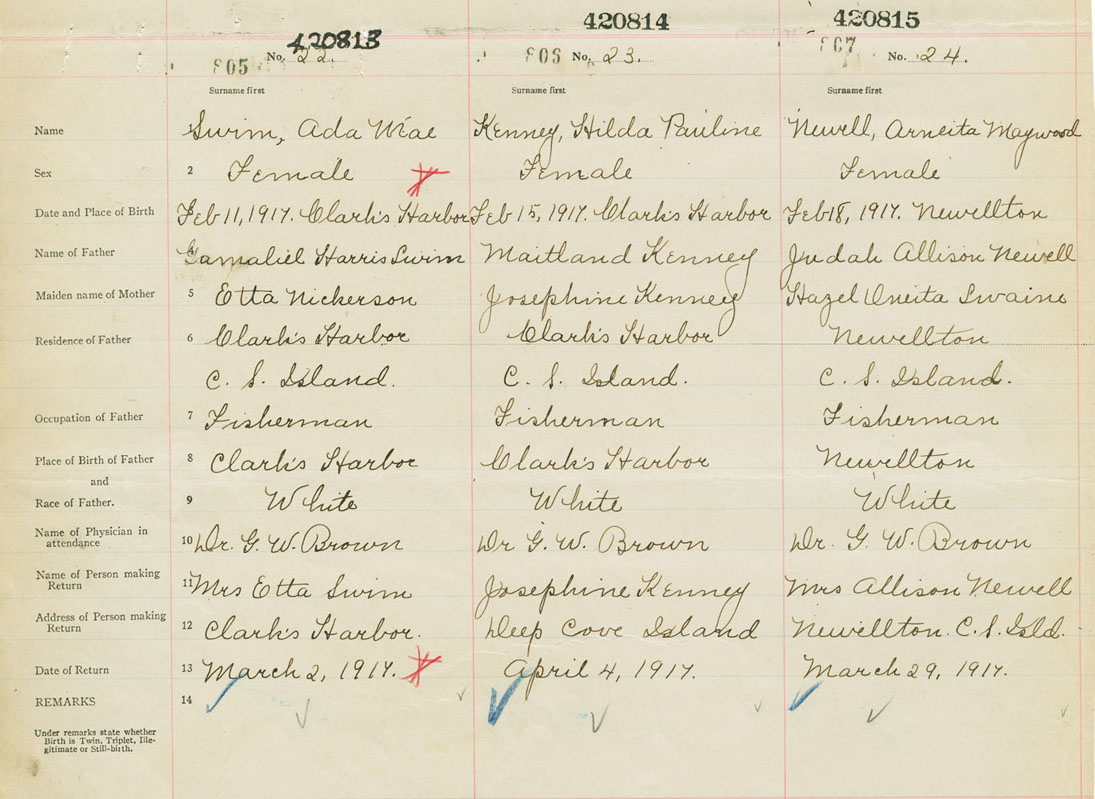 420813 420814 420815
805 No. 22. 806 No. 23. 807 No. 24.
Surname first Surname first Surname first
Name Swim, Ada Mae Kenney, Hilda Pauline Newell, Arneita Maywood
Sex 2 Female Female Female
Date and Place of Birth Feb 11, 1917. Clark's Harbor Feb 15, 1917. Clark's Harbor Feb 18, 1917. Newellton
Name of Father Gamaliel Harris Swim Maitland Kenney Judah Allison Newell
Maiden name of Mother 5 Etta Nickerson Josephine Kenney Hazel Oneita Swaine
Residence of Father 6 Clark's Harbor Clark's Harbor Newellton
C. S. Island. C. S. Island. C. S. Island.
Occupation of Father 7 Fisherman Fisherman Fisherman
Place of Birth of Father 8 Clark's Harbor Clark's Harbor Newellton
and
Race of Father. 9 White White White
Name of Physician in
attendance 10 Dr. G. W. Brown Dr G. W. Brown Dr. G. W. Brown
Name of Person making
Return 11 Mrs Etta Swim Josephine Kenney Mrs Allison Newell
Address of Person making
Return 12 Clark's Harbor. Deep Cove Island Newellton. C. S. Isld.
Date of Return 13 March 2, 1917. April 4, 1917. March 29, 1917.
REMARKS 14
Under remarks state whether
Birth is Twin, Triplet, Ille-
gitimate or Still-birth.